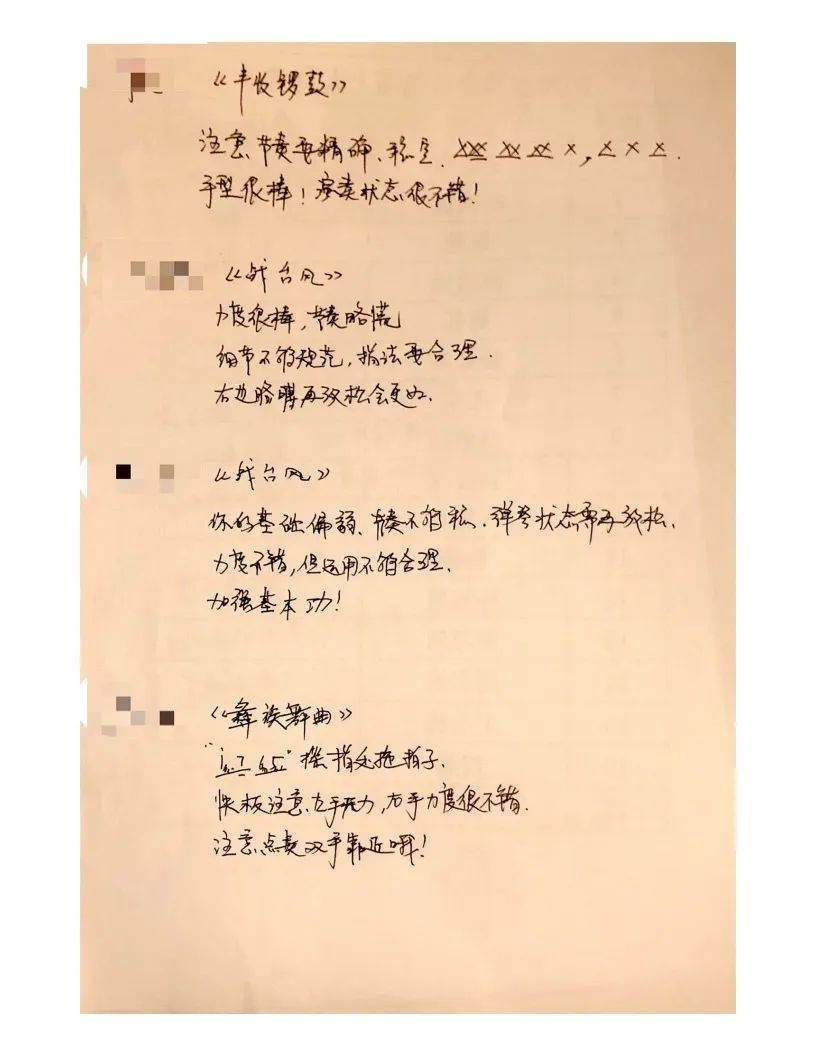 《丰收锣鼓》
注意节奏要精确、稳定. XXX XX XX X, X X X.
手型很棒!演奏状态很不错!
《战台风》
力度很棒,节奏略慌
细节不够规范,指法要合理.
右边胳膊再放松会更好.
《战台风》
你的基础偏弱、节奏不够稳.弹琴状态需再放松.
力度不错,但运用不够合理.
加强基本功!
《彝族舞曲》
摇指处拖拍子.
快板注意左手压力,右手力度很不错.
注意点奏双手靠近哦!